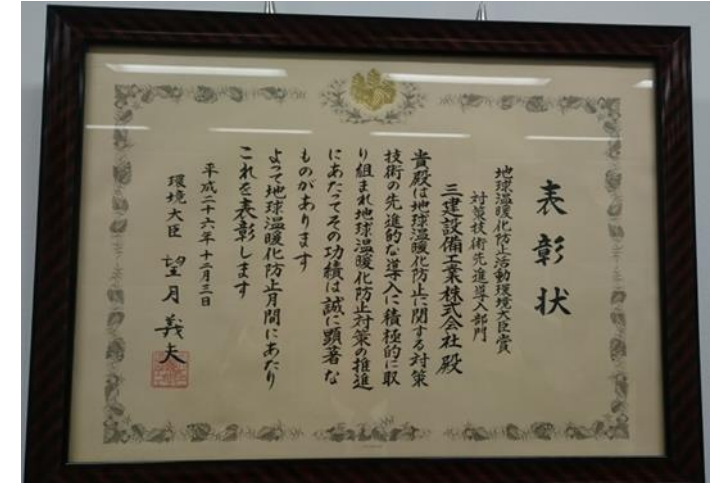 表彰状
地球温暖化防止活動環境大臣賞
対策技術先進導入部門
三建設備工業株式会社 殿
貴殿は地球温暖化防止に関する対策
技術の先進的な導入に積極的に取
り組まれ地球温暖化防止対策の推進
にあたってその功績は誠に顕著な
ものがあります
よって地球温暖化防止月間にあたり
これを表彰します
平成二十六年十二月三日
環境大臣 望月義夫